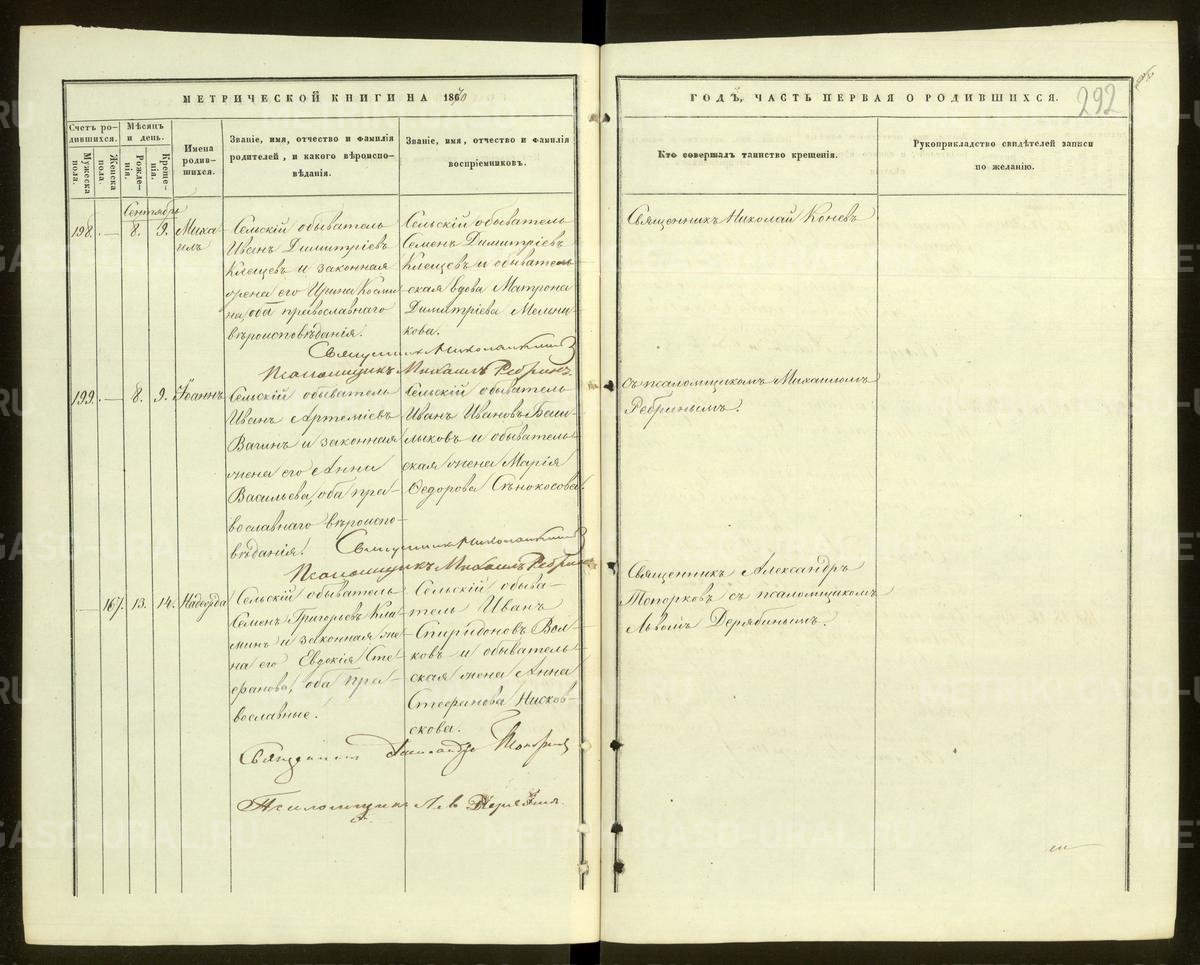 МЕТРИЧЕСКОЙ КНИГИ НА 1870
ГОДЪ, ЧАСТЬ ПЕРВАЯ О РОДИВШИХСЯ.
292
Счетъ родившихся.
Мужеска пола.
Женска пола.
Мѣсяцъ и день.
Рожденія.
Крещенія.
Имена родившихся.
Званіе, имя, отчество и фамилія
родителей, и какого вѣроиспо-
вѣданія.
Званіе, имя, отчество и фамилія
воспріемниковъ.
Кто совершалъ таинство крещенія.
Рукоприкладство свидѣтелей записи
по желанію.
Сентябрь
198. — 8. 9. Миха-
илъ
Сельскій обыватель
Иванъ Димитріевъ
Клещевъ и законная
жена его Ирина Косми-
на, оба православнаго
вѣроисповѣданія.
Сельскій обыватель
Семенъ Димитріевъ
Клещевъ и обыватель-
ская вдова Матрона
Димитріева Мельни-
кова.
Священникъ Николай Коневъ
Священникъ Николай Коневъ
Псаломщикъ Михаилъ Ребринъ
199. — 8. 9. Іоаннъ
Сельскій обыватель
Иванъ Артеміевъ
Вагинъ и законная
жена его Анна
Васильева, оба пра-
вославнаго вѣроиспо-
вѣданія.
Сельскій обыватель
Иванъ Ивановъ Баш-
лыковъ и обыватель-
ская жена Марія
Ѳедорова Сѣнокосова.
съ псаломщикомъ Михаиломъ
Ребринымъ.
Священникъ Николай Коневъ
Псаломщикъ Михаилъ Ребринъ
— 167. 13. 14. Надежда
Сельскій обыватель
Семенъ Григорьевъ
и законная же-
на его Евдокія Сте-
фанова, оба пра-
вославные.
Сельскій обыва-
тель Иванъ
Спиридоновъ Вол-
ковъ и обыватель-
ская жена Анна
Стефанова Нисков-
скова.
Священникъ Александръ
Топорковъ съ псаломщикомъ
Львомъ Дерябинымъ.
Священникъ Александръ Топорковъ
Псаломщикъ Левъ Дерябинъ
METRIKI.GASO-URAL.RU